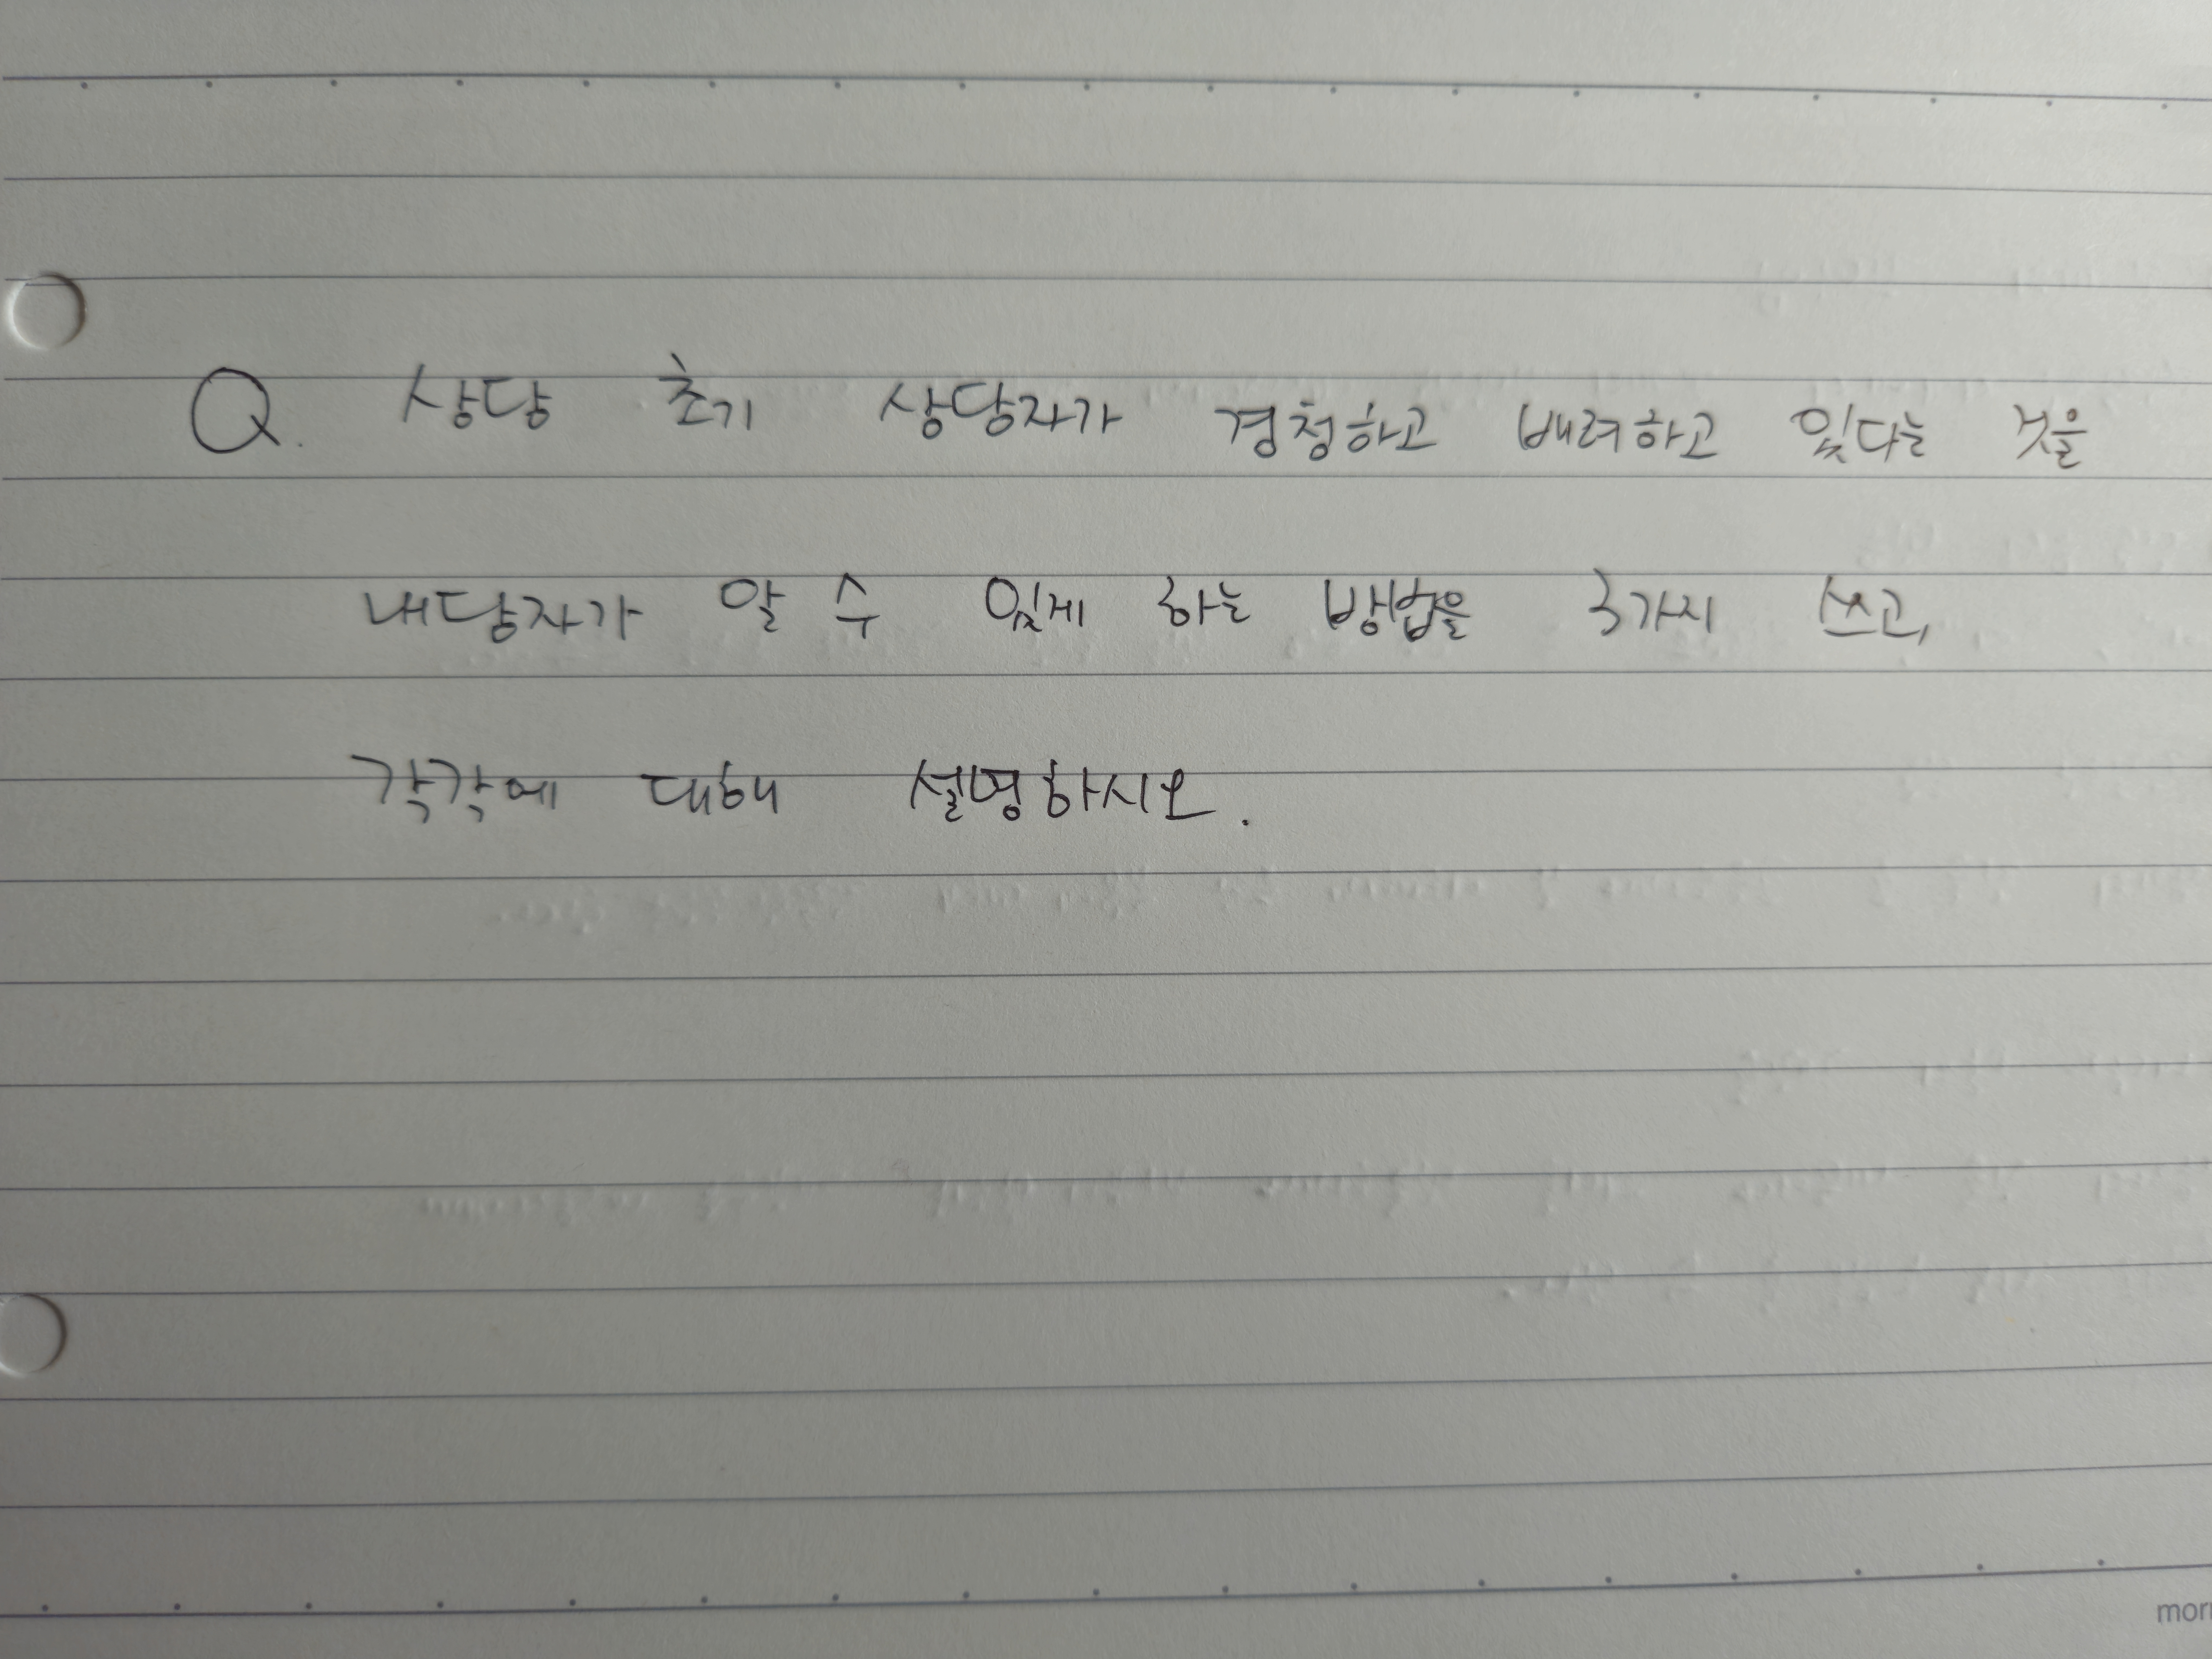 Q. 상담 초기 상담자가 경청하고 배려하고 있다는 것을
내담자가 알 수 있게 하는 방법을 3가지 쓰고,
각각에 대해 설명하시오.